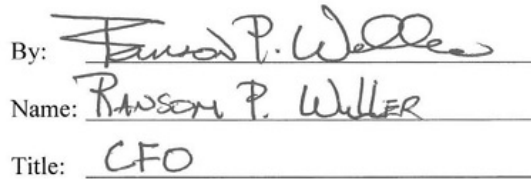 By: Ransom P. Willer
Name: RANSOM P. WILLER
Title: CFO